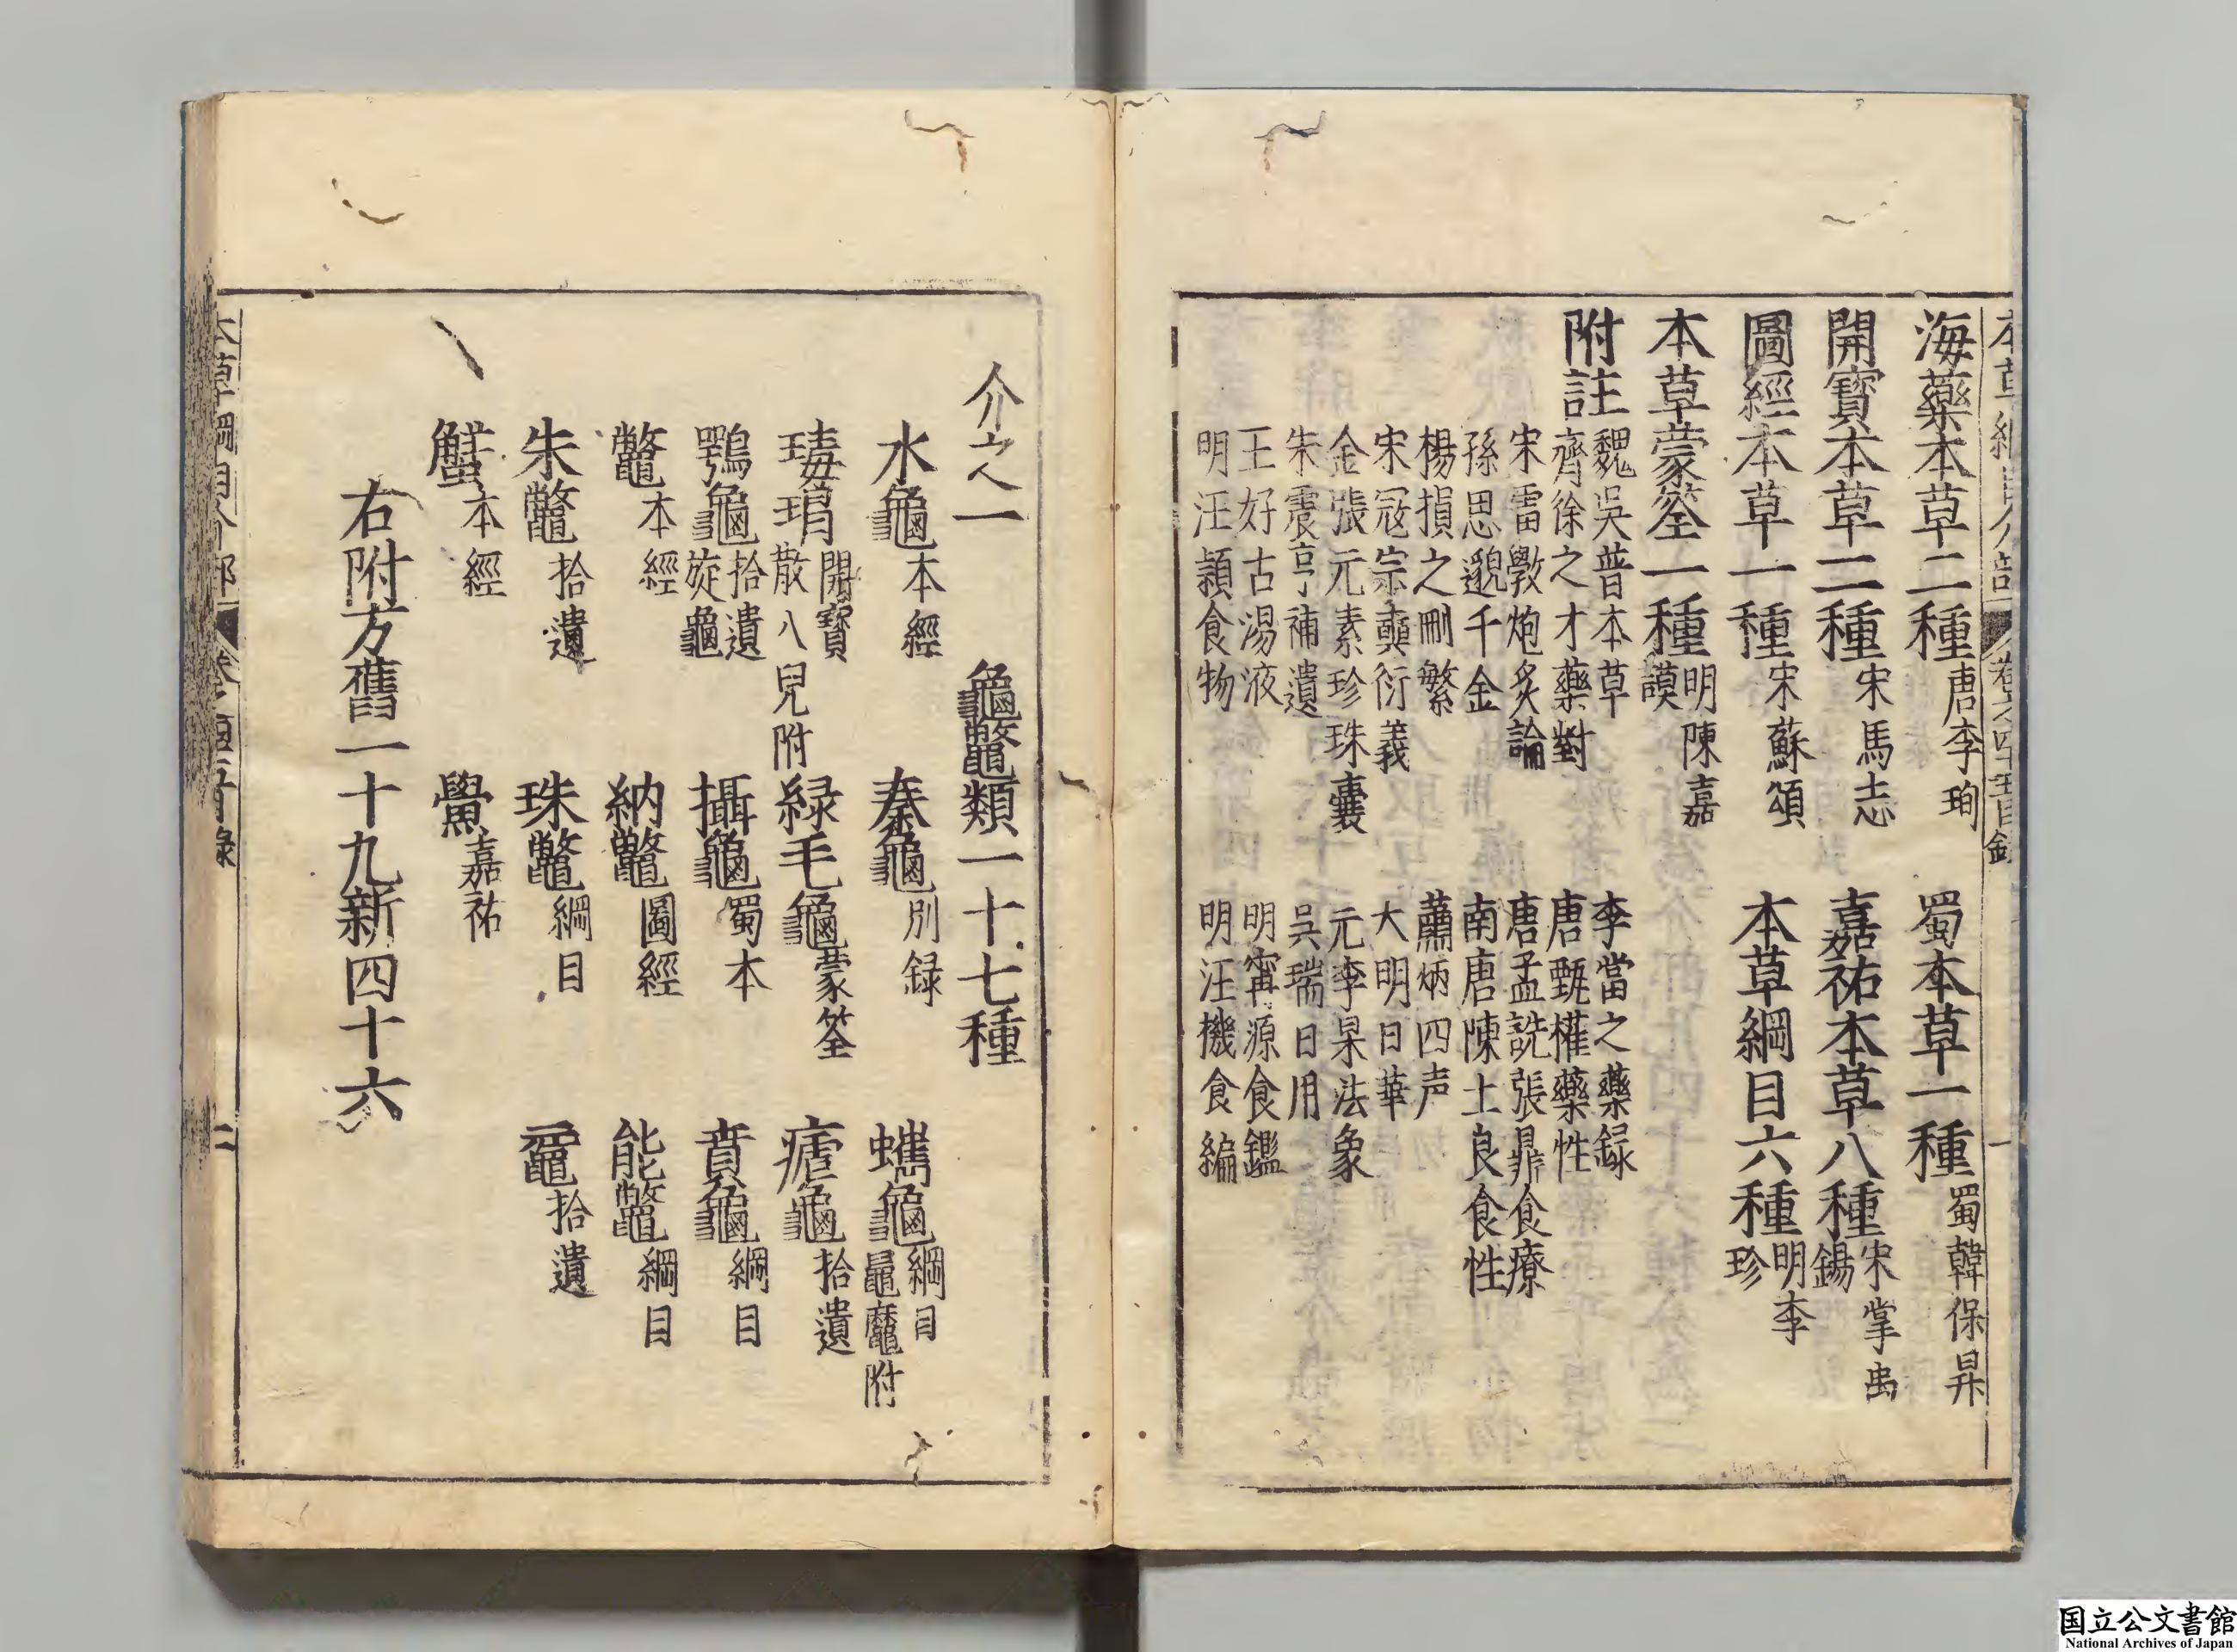 海藥本草二種唐李珣　蜀本草一種蜀韓保昇
開寶本草二種宋馬志　嘉祐本草八種宋掌禹錫
圖經本草一種宋蘇頌　本草綱目六種明李珍
本草蒙筌一種明陳嘉謨
附註魏吳普本草　李當之藥録
齊徐之才藥對　唐甄權藥性
宋雷斆炮炙論　唐孟詵張鼎食療
孫思邈千金　南唐陳士良食性
楊損之刪繁　蕭炳四声
宋冦宗奭衍義　大明日華
金張元素珍珠囊　元李杲法象
朱震亨補遺　吳瑞日用
王好古湯液　明甯源食鑑
明汪穎食物　明汪機食編
介之一　龜鼈類一十七種
水龜本經　秦龜別録　蠵龜綱目鼂𪓟附
瑇瑁開寶撒八兒附　緑毛龜蒙筌　瘧龜拾遺
鶚龜拾遺旋龜　攝龜蜀本　賁龜綱目
鼈本經　納鼈圖經　能鼈綱目
朱鼈拾遺　珠鼈綱目　黿拾遺
蟹本經　鱟嘉祐
右附方舊一十九新四十六
国立公文書館
National Archives of Japan